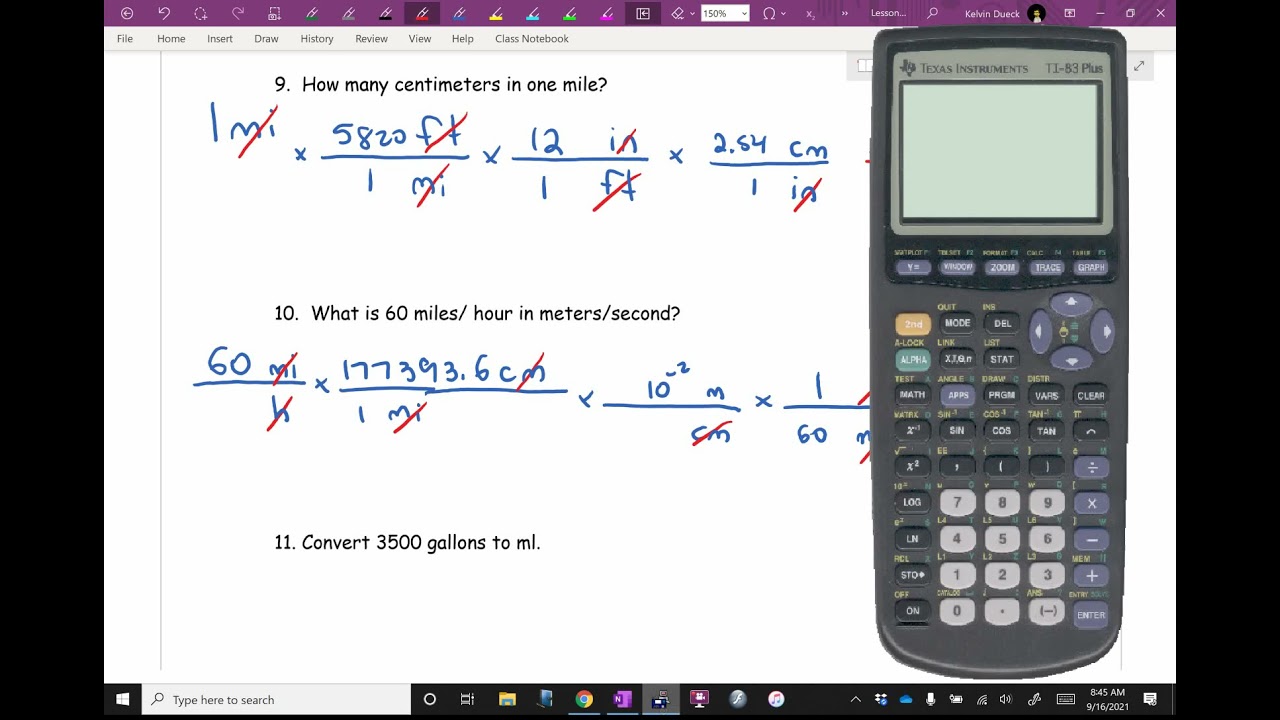 Lesson...
Kelvin Dueck
150%
File Home Insert Draw History Review View Help Class Notebook
9. How many centimeters in one mile?
1 mi × 5820 ft / 1 mi × 12 in / 1 ft × 2.54 cm / 1 in
10. What is 60 miles/ hour in meters/second?
60 mi / h × 177393.6 cm / 1 mi × 10⁻² m / cm × 1 / 60 m
11. Convert 3500 gallons to ml.
TEXAS INSTRUMENTS TI-83 Plus
STATPLOT F1 TBLSET F2 FORMAT F3 CALC F4 TABLE F5
Y= WINDOW ZOOM TRACE GRAPH
QUIT INS
2nd MODE DEL
A-LOCK LINK LIST
ALPHA X,T,θ,n STAT
TEST A ANGLE B DRAW C DISTR
MATH APPS PRGM VARS CLEAR
MATRX D SIN⁻¹ E COS⁻¹ F TAN⁻¹ G π H
x⁻¹ SIN COS TAN ^
EE J { K } L
x² , ( ) ÷
LOG 7 8 9 ×
L4 T L5 U L6 V
LN 4 5 6 −
RCL X L1 Y L2 Z L3 θ MEM
STO 1 2 3 +
OFF CATALOG ANS ENTRY SOLVE
ON 0 . (−) ENTER
Type here to search
8:45 AM
9/16/2021